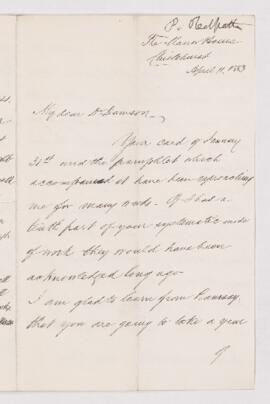 P. Redpath
The Manor House
Chislehurst
April 11, 1883
My dear Dr Dawson,
Your card of January
31st and the pamphlet which
accompanied it have been reproaching
me for many weeks. If I had a
tenth part of your systematic mode
of work they would have been
acknowledged long ago.
I am glad to learn from Ramsay
that you are going to take a year